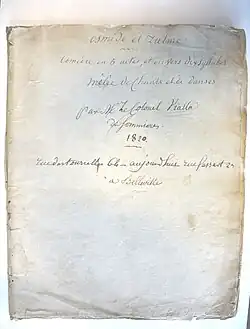 Osmide et Zulmé
Comédie en 5 actes et en vers Dissyllabes
Mêlée de Chants et de Danses
par Mr Le Colonel Vialla
de Sommieres
1820.
rue des tournelles 64 = aujourd'hui rue fessart
à Belleville